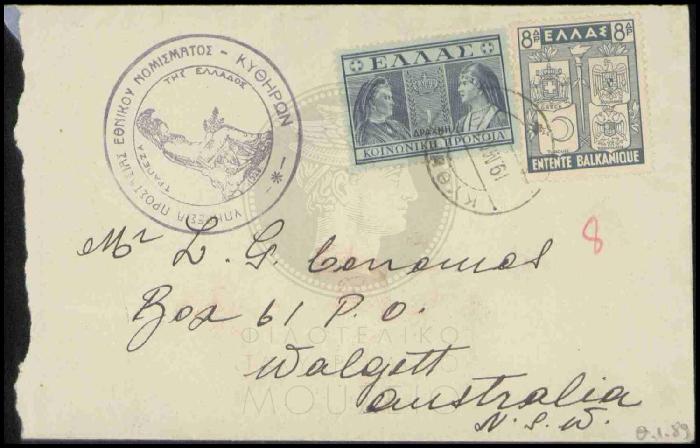 ΥΠΗΡΕΣΙΑ ΠΡΟΣΤΑΣΙΑΣ ΕΘΝΙΚΟΥ ΝΟΜΙΣΜΑΤΟΣ - ΚΥΘΗΡΩΝ - * -
ΤΡΑΠΕΖΑ ΤΗΣ ΕΛΛΑΔΟΣ
ΕΛΛΑΣ
ΔΡΑΧΜΗ 1
ΚΟΙΝΩΝΙΚΗ ΠΡΟΝΟΙΑ
8 ΔΡ ΕΛΛΑΣ 8 ΔΡ
ENTENTE BALKANIQUE
8
Mr L. G. Coronios
Box 61 P.O.
Walgett
Australia
N.S.W.
ΦΙΛΟΤΕΛΙΚΟ
ΜΟΥΣΕΙΟ
Θ.1.89